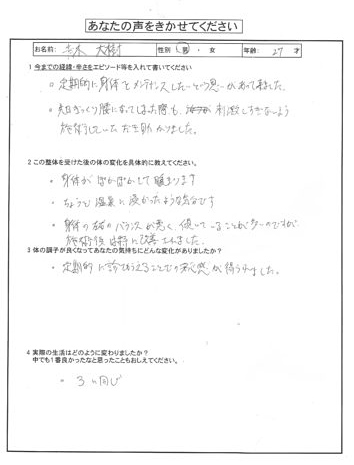 あなたの声をきかせてください
お名前: 大樹 性別 男・女 年齢: 27 才
1 今までの経緯・辛さをエピソード等を入れて書いてください
・定期的に身体をメンテナンスしたいという思いがあって来ました。
・ぎっくり腰になってしまった際も、刺激しすぎないよう
施術していただき助かりました。
2 この整体を受けた後の体の変化を具体的に教えてください。
・身体がぽかぽかして暖まります
・ちょうど温泉に浸かったような気分です
・身体の左右のバランスが悪く、傾いていることが多いのですが
施術後は特に改善されました。
3 体の調子が良くなってあなたの気持ちにどんな変化がありましたか?
・定期的に診てもらえることでの安心感が得られました。
4 実際の生活はどのように変わりましたか?
中でも1番良かったなと思ったこともおしえてください。
・3と同じ